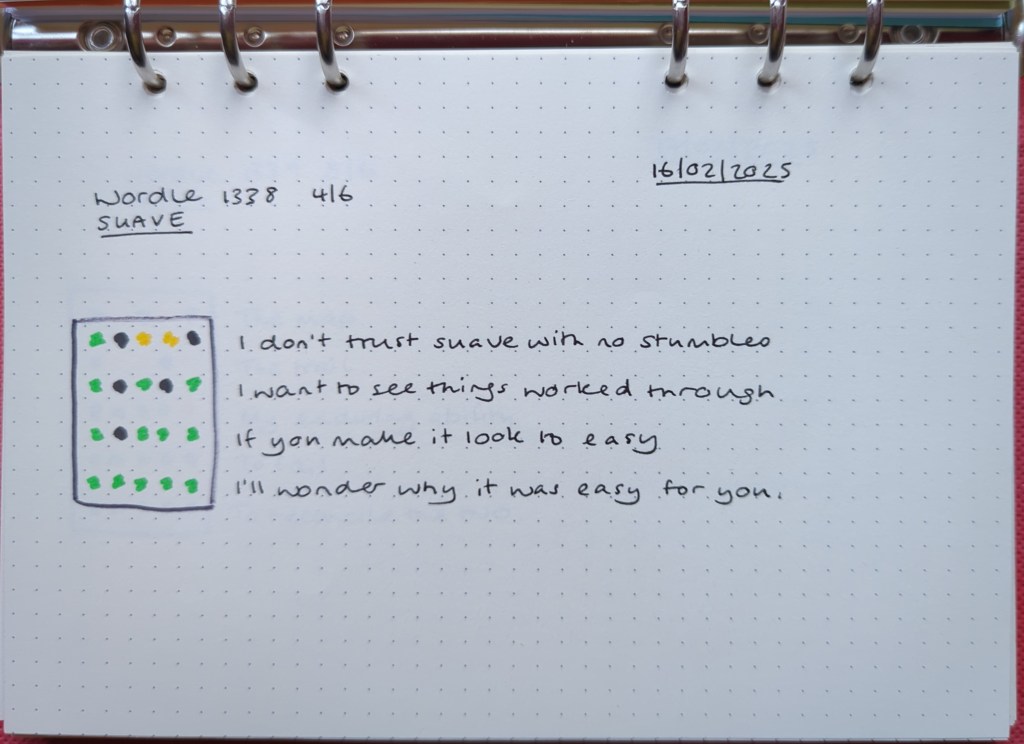 16/02/2025
Wordle 1338 4/6
SUAVE
I don't trust suave with no stumbles
I want to see things worked through
If you make it look to easy
I'll wonder why it was easy for you.